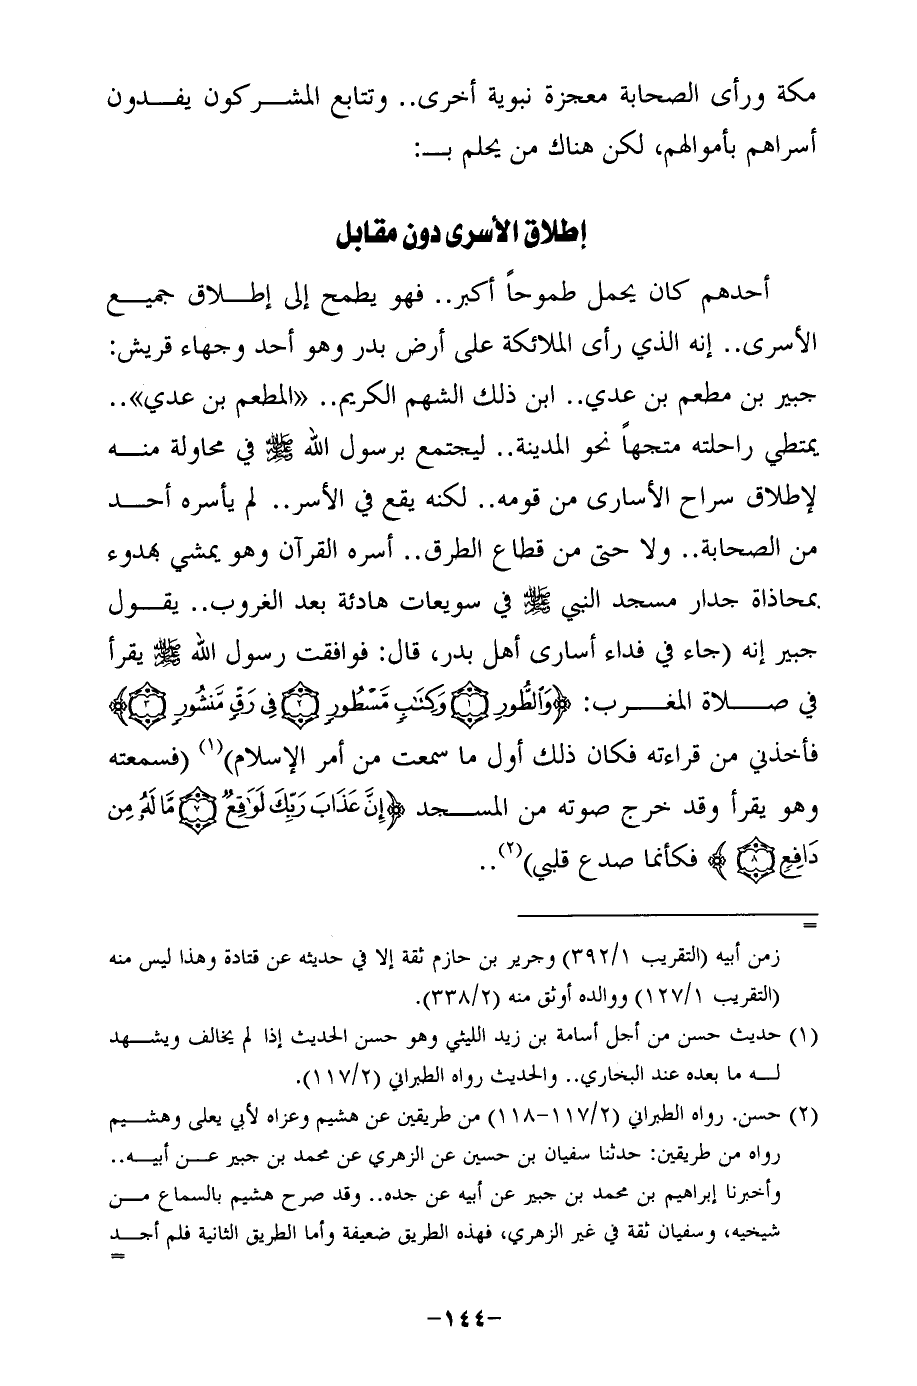 مكة ورأى الصحابة معجزة نبوية أخرى.. وتتابع المشركون يفدون
أسراهم بأموالهم، لكن هناك من يحلم بـ:
إطلاق الأسرى دون مقابل
أحدهم كان يحمل طموحاً أكبر.. فهو يطمح إلى إطلاق جميع
الأسرى.. إنه الذي رأى الملائكة على أرض بدر وهو أحد وجهاء قريش:
جبير بن مطعم بن عدي.. ابن ذلك الشهم الكريم.. «المطعم بن عدي»..
يمتطي راحلته متجهاً نحو المدينة.. ليجتمع برسول الله ﷺ في محاولة منه
لإطلاق سراح الأسارى من قومه.. لكنه يقع في الأسر.. لم يأسره أحد
من الصحابة.. ولا حتى من قطاع الطرق.. أسره القرآن وهو يمشي بهدوء
بمحاذاة جدار مسجد النبي ﷺ في سويعات هادئة بعد الغروب.. يقول
جبير إنه (جاء في فداء أسارى أهل بدر، قال: فوافقت رسول الله ﷺ يقرأ
في صلاة المغرب: ﴿وَٱلطُّورِ ١ وَكِتَٰبٍ مَّسْطُورٍ ٢ فِى رَقٍّ مَّنشُورٍ ٣﴾
فأخذني من قراءته فكان ذلك أول ما سمعت من أمر الإسلام)(١) (فسمعته
وهو يقرأ وقد خرج صوته من المسجد ﴿إِنَّ عَذَابَ رَبِّكَ لَوَٰقِعٌ ٧ مَّا لَهُۥ مِن
دَافِعٍ ٨﴾ فكأنما صدع قلبي)(٢)..
=
زمن أبيه (التقريب ٣٩٢/١) وجرير بن حازم ثقة إلا في حديثه عن قتادة وهذا ليس منه
(التقريب ١٢٧/١) ووالده أوثق منه (٣٣٨/٢).
(١) حديث حسن من أجل أسامة بن زيد الليثي وهو حسن الحديث إذا لم يخالف ويشهد
له ما بعده عند البخاري.. والحديث رواه الطبراني (١١٧/٢).
(٢) حسن. رواه الطبراني (١١٧/٢-١١٨) من طريقين عن هشيم وعزاه لأبي يعلى وهشيم
رواه من طريقين: حدثنا سفيان بن حسين عن الزهري عن محمد بن جبير عن أبيه..
وأخبرنا إبراهيم بن محمد بن جبير عن أبيه عن جده.. وقد صرح هشيم بالسماع من
شيخيه، وسفيان ثقة في غير الزهري، فهذه الطريق ضعيفة وأما الطريق الثانية فلم أجد
=
-١٤٤-